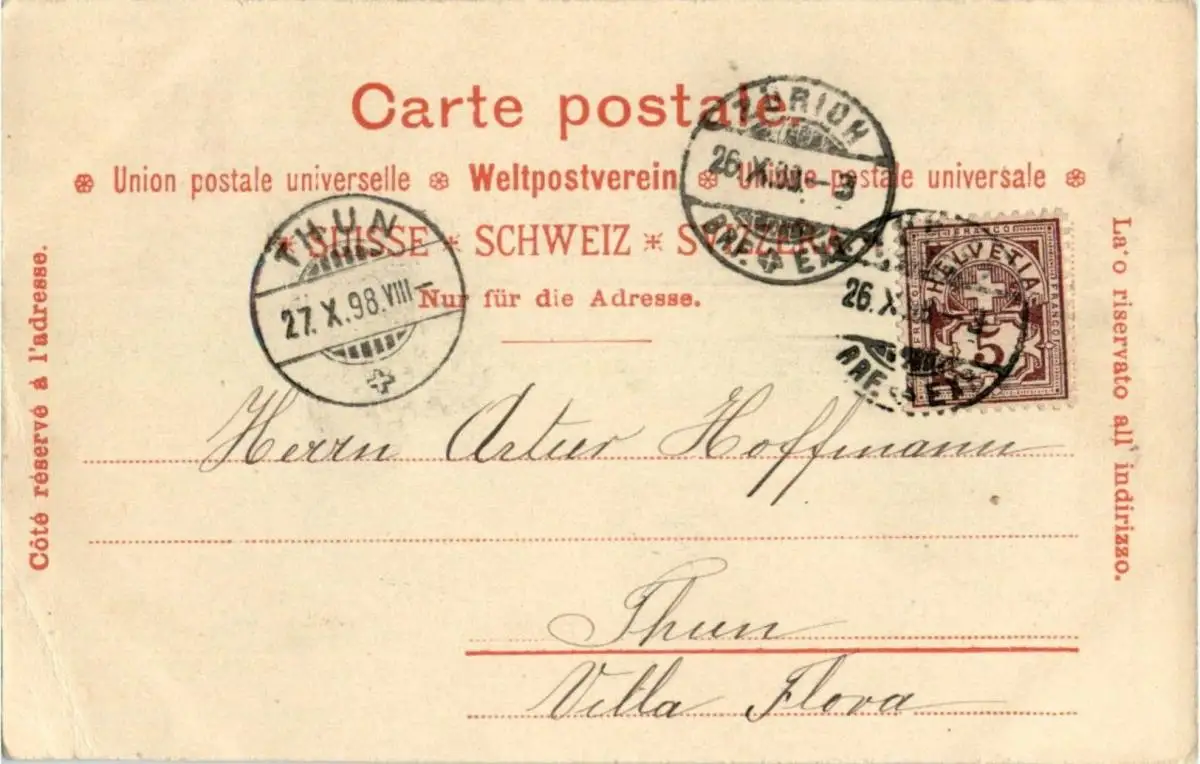 Carte postale.
Union postale universelle Weltpostverein Unione postale universale
SUISSE * SCHWEIZ * SVIZZERA
Nur für die Adresse.
Côté réservé á l'adresse.
La'o riservato all' indirizzo.
ZÜRICH
26.X.98.-3
BRF. EXP.
THUN
27.X.98.VIII
26.X.
BRF. EXP.
FRANCO
HELVETIA
FRANCO
FRANCO
5
Herrn Artur Hoffmann
Thun
Villa Flora